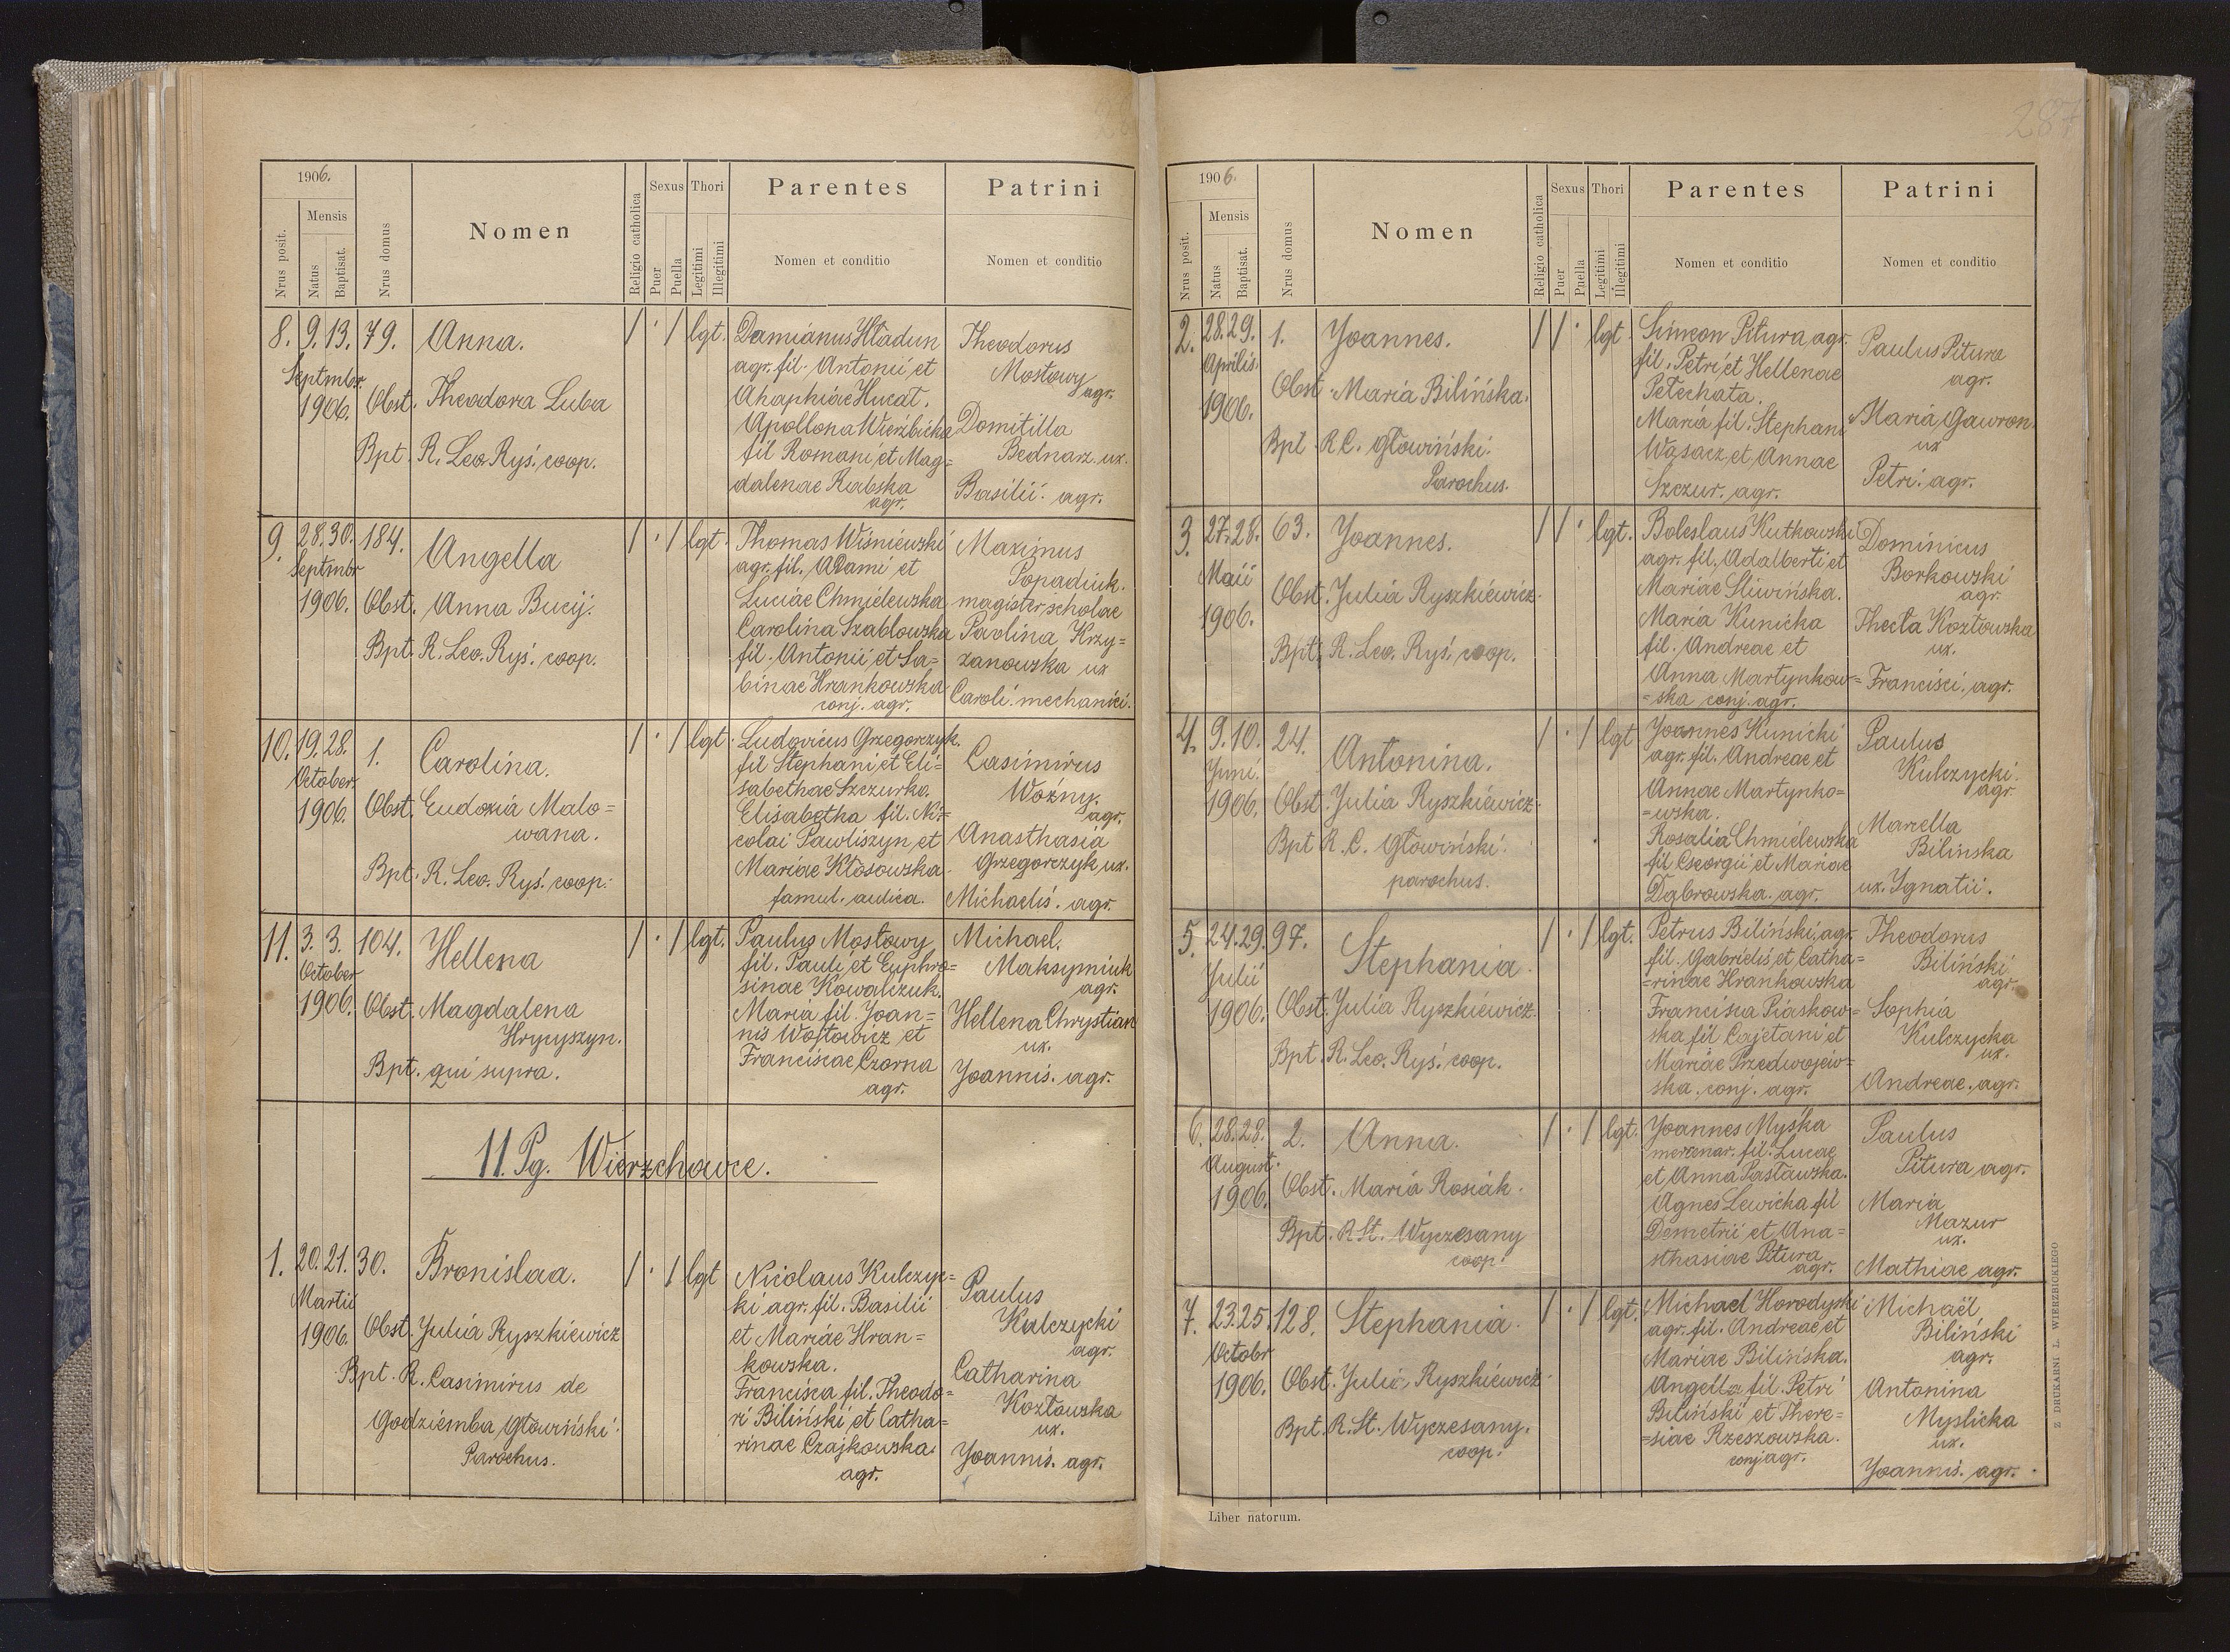 1906.
Nrus posit.
Mensis
Natus
Baptisat.
Nrus domus
Nomen
Religio catholica
Sexus
Puer
Puella
Thori
Legitimi
Illegitimi
Parentes
Nomen et conditio
Patrini
Nomen et conditio
8. 9. 13. 79. Anna. / · / lgt.
Septmbr.
1906. Obst. Theodora Luba
Bpt. R. Leo Ryś. coop.
Damianus Hładun
agr. fil. Antonii et
Ahaphiae Hucat.
Apollona Wierzbicka
fil Romani et Mag=
dalenae Rabska
agr.
Theodorus
Mostowy
agr.
Domitilla
Bednarz. ux.
Basilii. agr.
9. 28. 30. 184. Angella / · / lgt.
Septmbr
1906. Obst. Anna Bucij.
Bpt. R. Leo. Ryś. coop.
Thomas Wiśniewski
agr. fil. Adami et
Luciae Chmielewska
Carolina Szablowska
fil. Antonii et Sa=
binae Hrankowska
conj. agr.
Maximus
Popadiuk.
magister scholae
Paolina Krzy=
zanowska ux
Caroli. mechanici.
10. 19. 28. 1. Carolina. / · / lgt.
October.
1906. Obst. Eudoxia Malo=
wana.
Bpt. R. Leo. Ryś. coop.
Ludovicus Grzegorczyk.
fil Stephani et Eli=
sabethae Szczurko.
Elisabetha fil. Ni=
colai Pawliszyn et
Mariae Kłosowska
famul. aulica.
Casimirus
Woźny.
agr.
Anasthasia
Grzegorczyk ux.
Michaelis. agr.
11. 3. 3. 104. Hellena / · / lgt.
October
1906. Obst. Magdalena
Hrycyszyn.
Bpt. qui supra.
Paulus Mostowy
fil. Pauli et Euphro=
sinae Kowalczuk.
Maria fil. Joan=
nis Wojtowicz et
Franciscae Czorna
agr.
Michael.
Maksymiuk
agr.
Hellena Chrystian
ux.
Joannis. agr.
11. Pg. Wierzchowce.
1. 20. 21. 30. Bronislaa. / · / lgt
Martii
1906. Obst. Julia Ryszkiewicz
Bpt. R. Casimirus de
Godziemba Głowiński.
Parochus.
Nicolaus Kulczyc=
ki agr. fil. Basilii
et Mariae Hran=
kowska.
Francisca fil. Theodo=
ri Biliński et Catha=
rinae Czajkowska.
agr.
Paulus
Kulczycki
agr.
Catharina
Kozłowska
ux.
Joannis. agr.
287
1906.
Nrus posit.
Mensis
Natus
Baptisat.
Nrus domus
Nomen
Religio catholica
Sexus
Puer
Puella
Thori
Legitimi
Illegitimi
Parentes
Nomen et conditio
Patrini
Nomen et conditio
2. 28. 29. 1. Joannes. / / · lgt
Aprilis.
1906. Obst. Maria Bilińska.
Bpt. R C. Głowiński.
Parochus.
Simeon Pitura, agr.
fil. Petri et Hellenae
Petechata.
Maria fil. Stephani
Wąsacz, et Annae
Szczur. agr.
Paulus Pitura
agr.
Maria Gawron.
ux
Petri. agr.
3. 27. 28. 63. Joannes. / / · lgt.
Maii
1906. Obst. Julia Ryszkiewicz.
Bpt. R. Leo. Ryś. coop.
Boleslaus Kutkowski
agr. fil. Adalberti et
Mariae Sliwińska.
Maria Kunicka
fil. Andreae et
Anna Martynkow=
=ska conj. agr.
Dominicus
Borkowski
agr.
Thecla Kozłowska
ux.
Francisci. agr.
4. 9. 10. 24. Antonina. / · / lgt
Juni.
1906. Obst. Julia Ryszkiewicz.
Bpt R. C. Głowiński.
parochus.
Joannes Kunicki
agr. fil. Andreae et
Annae Martynko=
=wska.
Rosalia Chmielewska
fil Georgii et Mariae
Dąbrowska. agr.
Paulus
Kulczycki.
agr
Marella
Bilinska
ux. Ignatii.
5. 24. 29. 97. Stephania. / · / lgt.
Julii
1906. Obst. Julia Ryszkiewicz.
Bpt. R. Leo. Ryś. coop.
Petrus Biliński. agr.
fil. Gabrielis et Catha=
=rinae Hrankowska
Francisca Piaskow=
ska fil Cajetani et
Mariae Przedwojew=
ska. conj. agr.
Theodorus
Biliński
agr.
Sophia
Kulczycka
ux.
Andreae. agr.
6. 28. 28. 2. Anna. / · / lgt.
August.
1906. Obst. Maria Rosiak.
Bpt. R St. Wyczesany
coop.
Joannes Myśka
mercenar. fil. Lucae
et Anna Pasławska.
Agnes Lewicka fil
Demetrii et Ana=
sthasiae Pitura
agr.
Paulus
Pitura agr.
Maria
Mazur
ux.
Mathiae agr.
7. 23. 25. 128. Stephania. / · / lgt.
Octobr
1906. Obst. Julia Ryszkiewicz.
Bpt. R. St. Wyczesany.
coop.
Michael Horodyski
agr. fil. Andreae et
Mariae Bilińska.
Angella fil. Petri
Biliński et There=
=siae Rzeszowska.
conj agr.
Michaël
Biliński
agr.
Antonina
Myslicka
ux.
Joannis. agr.
Liber natorum.
Z DRUKARNI L. WIERZBICKIEGO